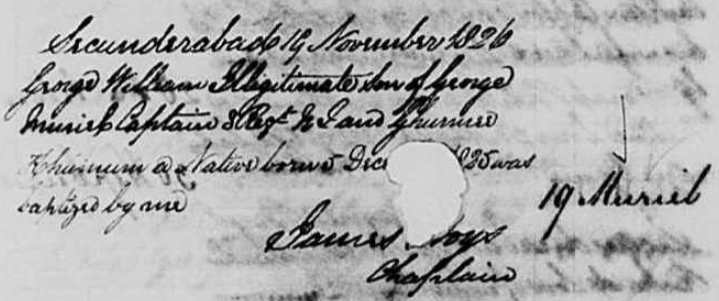 Secunderabad 19 November 1826
George William Illegitimate Son of George
Muriel Captain 8 Regt N I and
Khanum a Native born 5 Dec 1825 was
baptized by me
James
Chaplain
19 Muriel